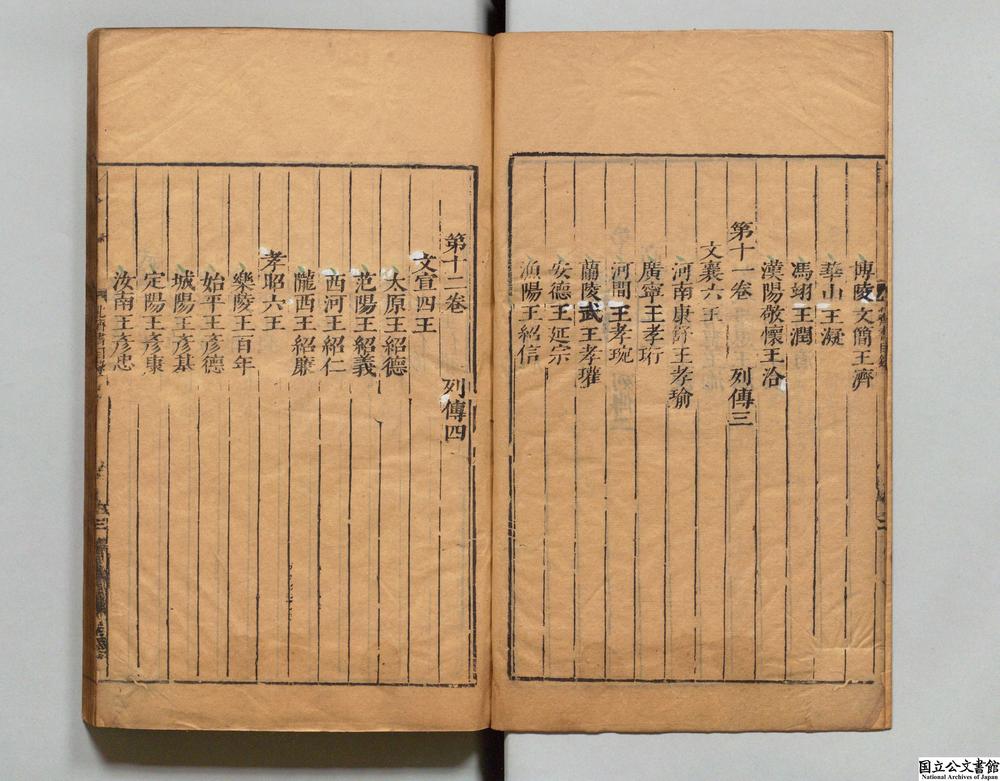 博陵文簡王濟
華山王凝
馮翊王潤
漢陽敬懷王洽
第十一卷 列傳三
文襄六王
河南康舒王孝瑜
廣寧王孝珩
河間王孝琬
蘭陵武王孝瓘
安德王延宗
漁陽王紹信
第十二卷 列傳四
文宣四王
太原王紹德
范陽王紹義
西河王紹仁
隴西王紹廉
孝昭六王
樂陵王百年
始平王彥德
城陽王彥基
定陽王彥康
汝南王彥忠
国立公文書館
National Archives of Japan